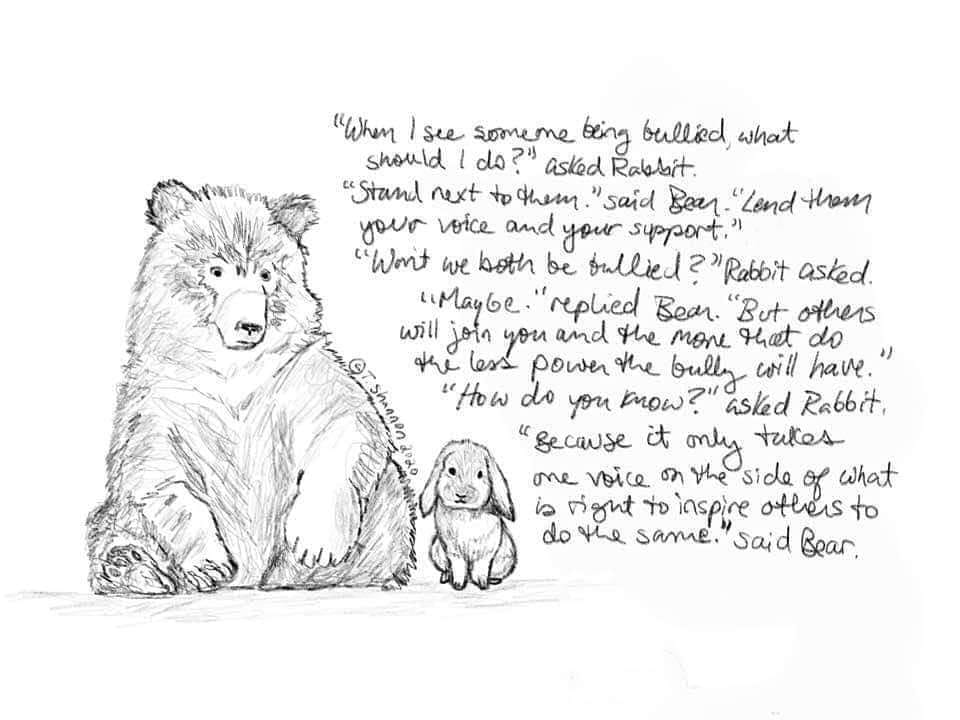 "When I see someone being bullied, what
should I do?" asked Rabbit.
"Stand next to them." said Bear. "Lend them
your voice and your support."
"Won't we both be bullied?" Rabbit asked.
"Maybe." replied Bear. "But others
will join you and the more that do
the less power the bully will have."
"How do you know?" asked Rabbit.
"Because it only takes
one voice on the side of what
is right to inspire others to
do the same." said Bear.
© T. Shannon 2020